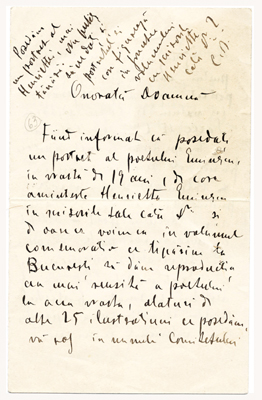 Posedăm
un portret al
Henriettei, când
tânără
să ne dați și
portretul
ce figurează
în fruntea
volumului
cu scrisorile
Henriettei
către Dv.?
C.B.
Onorată Doamnă
Fiind informat că posedați
un portret al poetului Eminescu,
în vrâsta de 19 ani, de care
amintește Henrietta Eminescu
în scrisorile sale către Dv. și
doarece voim ca în volumul
comemorativ ce tipărim la
București să dăm reproducția
cea mai reușită a poetului
la acea vrâsta, alaturi de
alte 25 ilustrațiuni ce posedăm,
vă rog în numele Comitetului